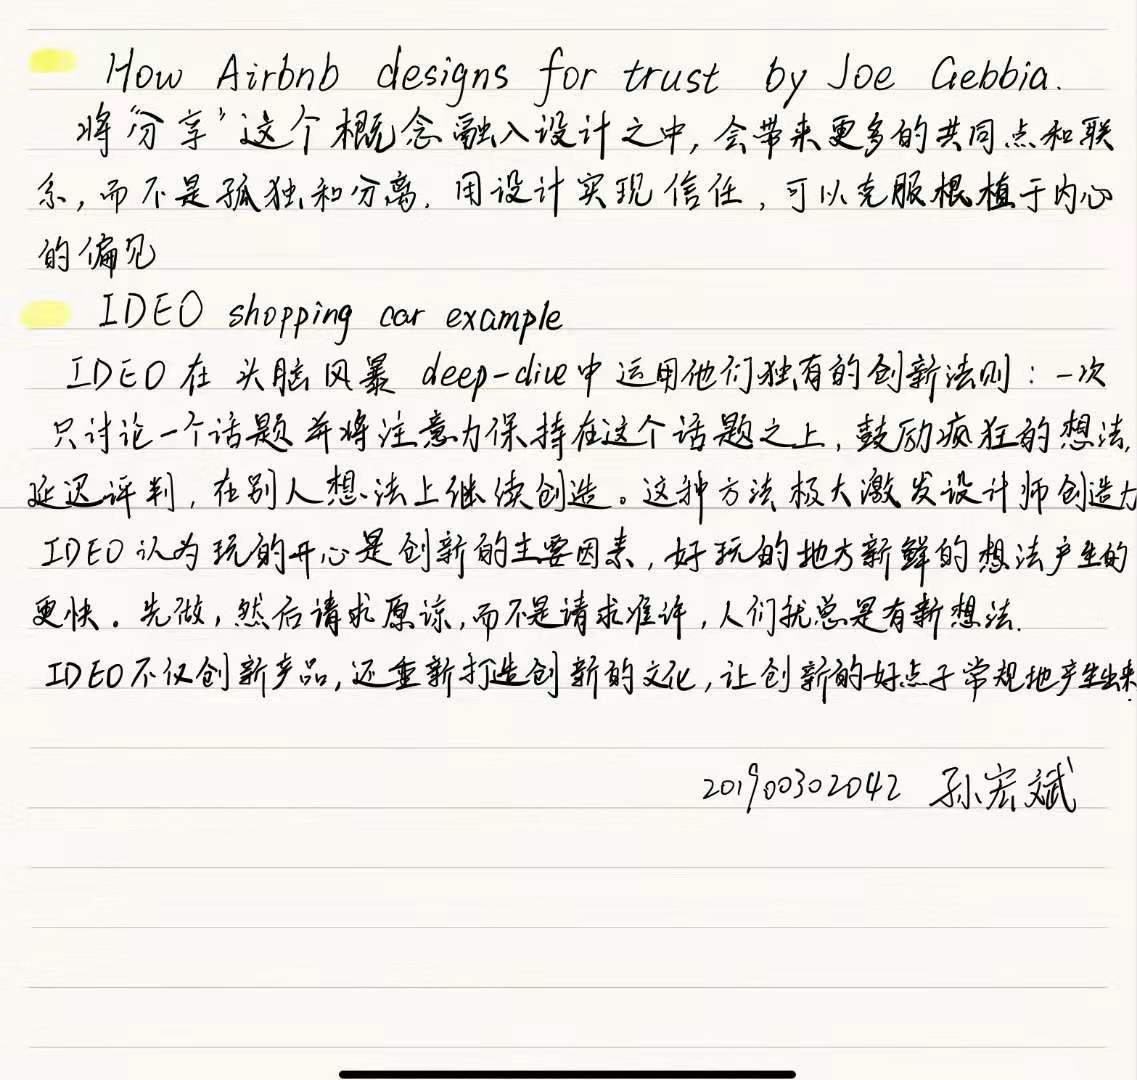 How Airbnb designs for trust by Joe Gebbia.
将“分享”这个概念融入设计之中，会带来更多的共同点和联
系，而不是孤独和分离．用设计实现信任，可以克服根植于内心
的偏见
IDEO shopping car example
IDEO在头脑风暴 deep-dive中运用他们独有的创新法则：一次
只讨论一个话题并将注意力保持在这个话题之上，鼓励疯狂的想法，
延迟评判，在别人想法上继续创造。这种方法极大激发设计师创造力
IDEO认为玩的开心是创新的主要因素，好玩的地方新鲜的想法产生的
更快。先做，然后请求原谅，而不是请求准许，人们就总是有新想法．
IDEO不仅创新产品，还重新打造创新的文化，让创新的好点子常规地产生出来．
201900302042 孙宏斌